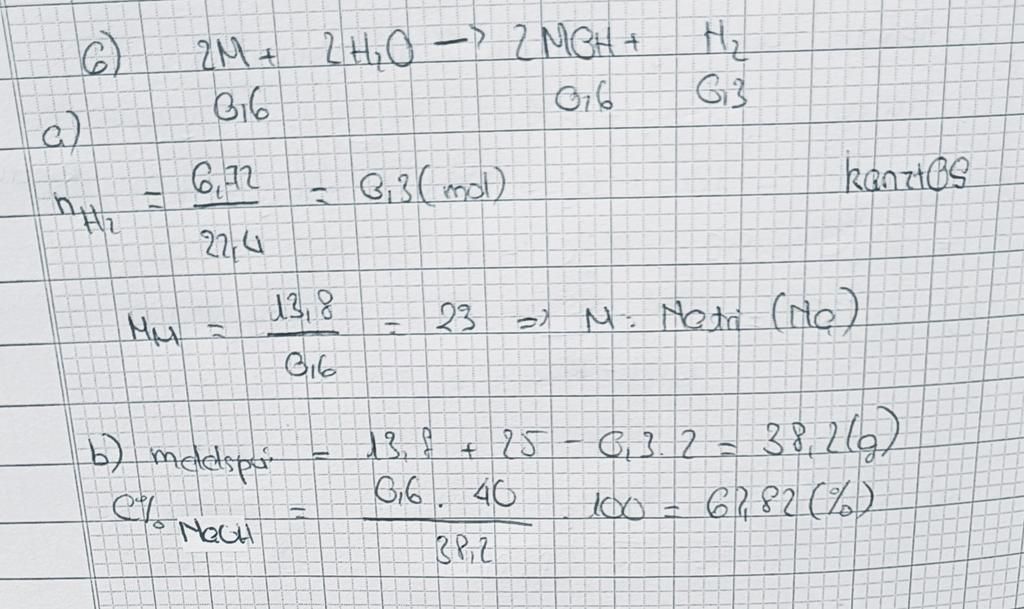 6) 2M + 2H₂O → 2MOH + H₂
0,6 0,6 0,3
a)
n_H₂ = 6,72 / 22,4 = 0,3 (mol)
kanzt0S
M_M = 13,8 / 0,6 = 23 => M: Natri (Na)
b) mddspư = 13,8 + 25 - 0,3.2 = 38,2 (g)
C%_NaOH = 0,6 . 40 / 38,2 . 100 = 62,82 (%)